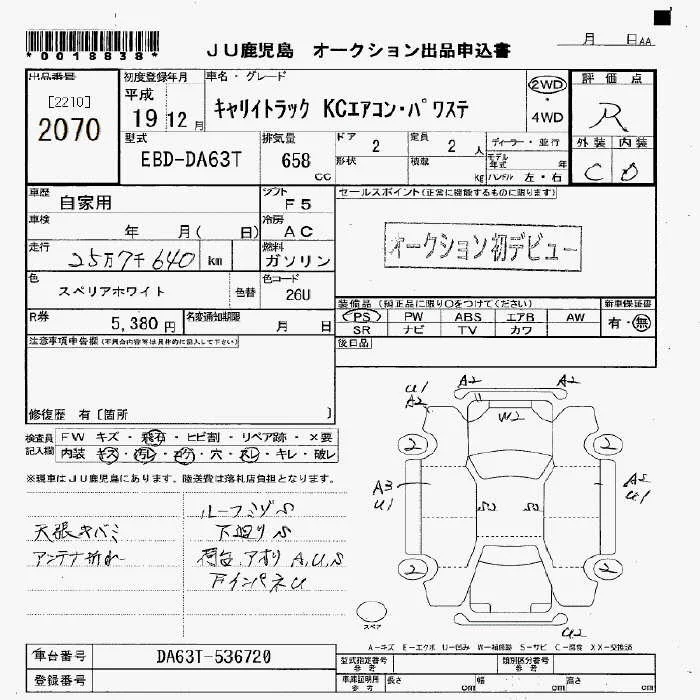 *0018838*
JU鹿児島 オークション出品申込書
月 日AA
出品番号
[2210]
2070
初度登録年月
平成
19 12月
車名・グレード
キャリイトラック KCエアコン・パワステ
2WD
・
4WD
評価点
R
外装 内装
C D
型式
EBD-DA63T
排気量
658
cc
ドア 2
形状
定員 2 人
積載 kg
ディーラー・並行
モデル年式 年
ハンドル 左・右
車歴 自家用
シフト F5
セールスポイント(正常に機能するものに限ります)
オークション初デビュー
車検 年 月( 日)
冷房 AC
走行 25万7千640 km
燃料 ガソリン
色 スペリアホワイト
色替
色コード 26U
装備品(純正品に限り○をつけてください)
新車保証書
PS PW ABS エアB AW
SR ナビ TV カワ
有・無
R券 5,380円
名変通知期限 月 日
後日品
注意事項申告欄(不具合内容等は具体的に記入して下さい)
修復歴 有[箇所 ]
検査員記入欄
FW キズ・飛石・ヒビ割・リペア跡・×要
内装 キズ・汚レ・コゲ・穴・スレ・キレ・破レ
※現車はJU鹿児島にあります。陸送費は落札店負担となります。
天張キバミ
アンテナ折れ
ルーフミゾS
下廻りS
荷台、アオリ A,U,S
下インパネU
A2 A2
U1
A2
W2
2 2
A3
U1
S S
A2
U1
2 2
U2
スペア
A-キズ E-エクボ U-凹み W-補修跡 S-サビ C-腐食 XX-交換済
車台番号 DA63T-536720
登録番号
型式指定番号 参考
類別区分番号 参考
車庫証明用 参考
長さ cm 幅 cm 高さ cm